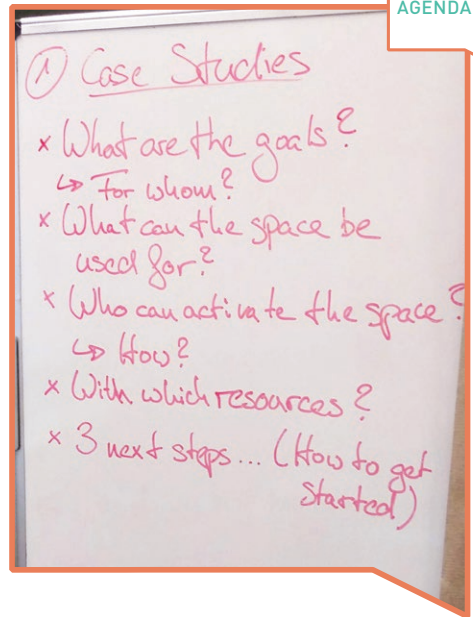 AGENDA
① Case Studies
x What are the goals?
↳ For whom?
x What can the space be
used for?
x Who can activate the space?
↳ How?
x With which resources?
x 3 next steps... (How to get
started)